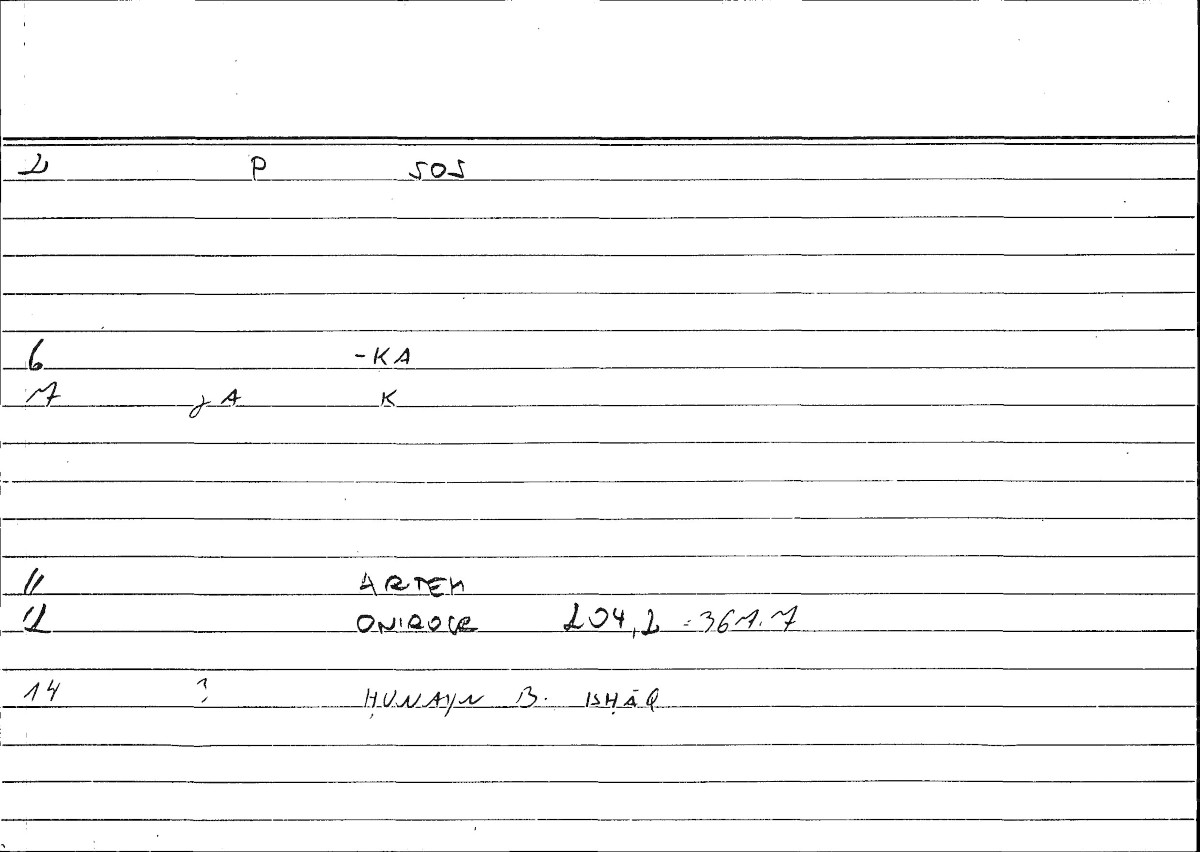 2 P SOS
6 -KA
7 γA K
11 ARTEM
12 ONIROCR 204,2 = 367.7
14 ? ḤUNAYN B. ISḤĀQ